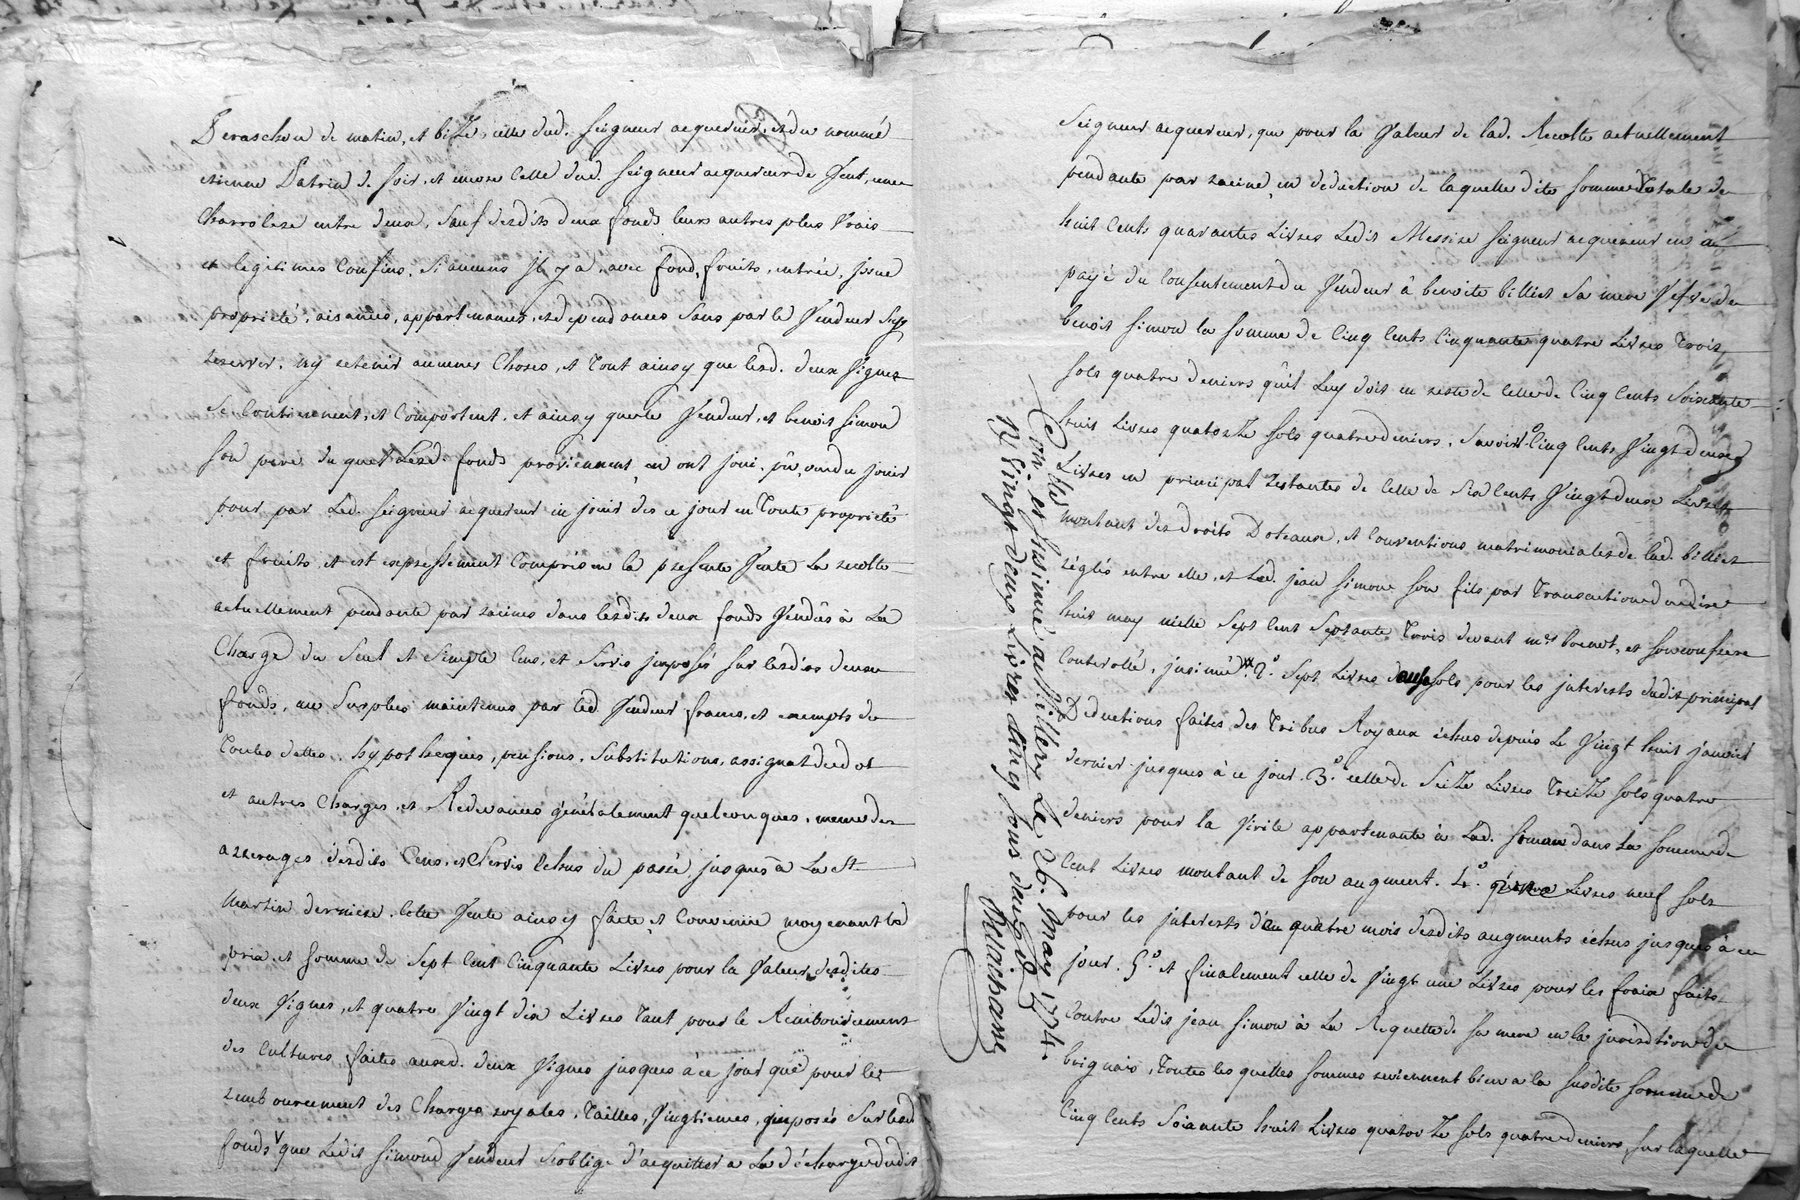 de matin, et bize, celle dud. Seigneur acquereur, et du nommé
etienne Patrin de soir, et encore celle dud. Seigneur acquereur de Vent, une
Charrolere entre deux, sauf desdits deux fonds leurs autres plus Vrais
et legitimes Confins, si aucuns jl y a, avec fond, fruits, entrée, jssue
proprieté, aisances, appartenances, et dependances sans par le Vendeur s'y
reserver, ny retenir aucunes Choses, et tout ainsy que lesd. deux Vignes
se Contiennent, et Comportent, et ainsy que le Vendeur, et benoit Simond
son pere duquel lesd. fonds proviennent, en ont joui, pû, ou du jouir
pour par Led. Seigneur acquereur en jouir des ce jour en toute proprieté
et fruits, et est expressement Compris en la presente Vente La recolte
actuellement pendante par racines dans lesdits deux fonds Vendus à La
Charge du Seul et Simple Cens, et Servis jmposés sur lesdits deux
fonds, au Surplus maintenus par led. Vendeur francs, et exempts de
toutes dettes, hypotheques, pensions, Substitutions, assignat de dot
et autres Charges, et Redevances generalement quelconques, meme des
arrerages desdits Cens, et Servis echus du passé jusques à La St.
Martin derniere. Cette Vente ainsy faite et Convenüe moyenant le
prix, et somme de Sept Cent Cinquante Livres pour la Valeur desdites
deux Vignes, et quatre Vingt dix Livres tant pour le Remboursement
des Cultures faites auxd. deux Vignes jusques à ce jour que pour le
remboursement des Charges royales, tailles, Vingtiemes, jmposés Sur lesd.
fonds que Ledit Simond Vendeur s'oblige d'acquitter a La décharge dudit
Seigneur acquereur, que pour la Valeur de lad. Recolte actuellement
pendante par racine, en deduction de laquelle dite somme totale de
huit Cents quarantes Livres Ledit Messire Seigneur acquereur en a
payé du Consentement du Vendeur à benoite billiet Sa mere Vefve de
benoit Simon la Somme de Cinq Cents Cinquante quatre Livres trois
sols quatre deniers qu'il Luy doit en reste de Celle de Cinq Cents Soixante
huit Livres quatorze sols quatre deniers. Savoir 1.° Cinq Cents Vingt deux
Livres en principal restantes de Celle de Six Cents Vingt deux Livres
montant des droits Dotaux, et Conventions matrimoniales de lad. billiet
réglés entre elle, et Led. jean Simon son fils par transaction du dix
huit may mille Sept Cent Septante trois devant me. et son confrere
Controllée, jnsinué. 2.° Sept Livres sols pour les jnterests dudit principal
Deductions faites des tribus Royaux échus depuis Le Vingt huit janvier
dernier jusques à ce jour. 3.° celle de Seize Livres treize sols quatre
deniers pour la Virile appartenante à Lad. Simon dans La somme de
Cent Livres montant de son augment. 4.° Livres neuf sols
pour les jnterests de quatre mois desdits augments échus jusques à ce
jour. 5.° et finalement celle de Vingt une Livres pour les fraix faits
Contre Ledit jean Simon à La Requette de sa mere en la jurisdiction de
brignais, toutes lesquelles sommes reviennent bien a la susdite somme de
Cinq Cents Soixante huit Livres quatorze sols quatre deniers, sur laquelle
Con.lé et jnsinué a Millery Le 26. May 1774.
R. Vingt deux Livres Cinq sous
Delaichasse